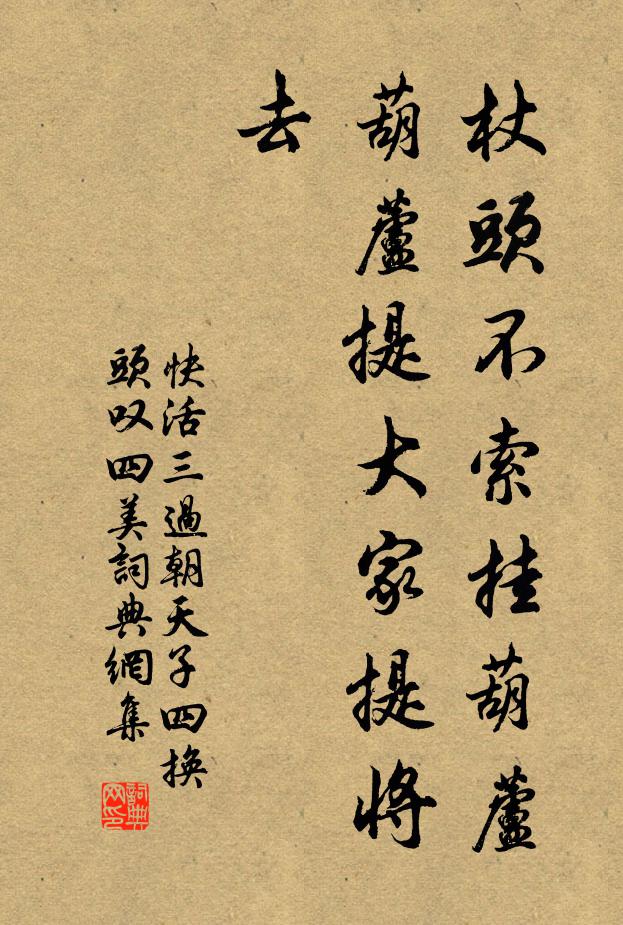 杖頭不索挂葫蘆
葫蘆提大家提將
去
快活三過朝天子四換
頭叹四美詞典網集
詞典
网印